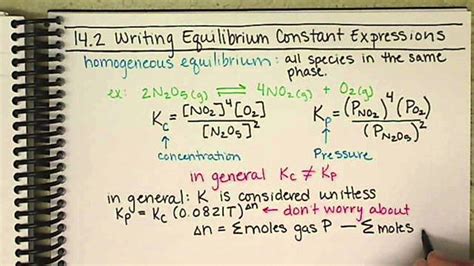 14.2 Writing Equilibrium Constant Expressions
homogeneous equilibrium: all species in the same
phase.
ex: 2N₂O₅(g) ⇌ 4NO₂(g) + O₂(g)
K꜀ = [NO₂]⁴[O₂] / [N₂O₅]² Kₚ = (P_NO₂)⁴(P_O₂) / (P_N₂O₅)²
↑ concentration ↑ Pressure
in general Kc ≠ Kp
in general: K is considered unitless
Kp = Kc (0.0821T)^Δn ← don't worry about
Δn = Σmoles gas P − Σmoles